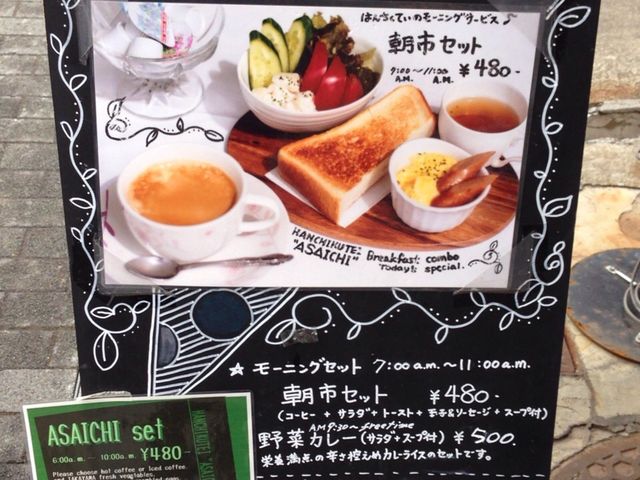 はんちくていのモーニングサービス♪
朝市セット
9:00～11:00
A.M. A.M.
¥480-
HANCHIKUTEI
"ASAICHI" Breakfast combo
Today's special.
★ モーニングセット 7:00a.m.～11:00a.m.
朝市セット ¥480-
(コーヒー + サラダ + トースト + 玉子&ソーセージ + スープ付)
AM9:30～freetime
野菜カレー(サラダ+スープ付) ¥500.
栄養満点の辛さ控えめカレーライスのセットです。
ASAICHI set
6:00a.m. - 10:00a.m. ¥480-
Please choose hot coffee or Iced coffee
and TAKAYAMA fresh vegetables.